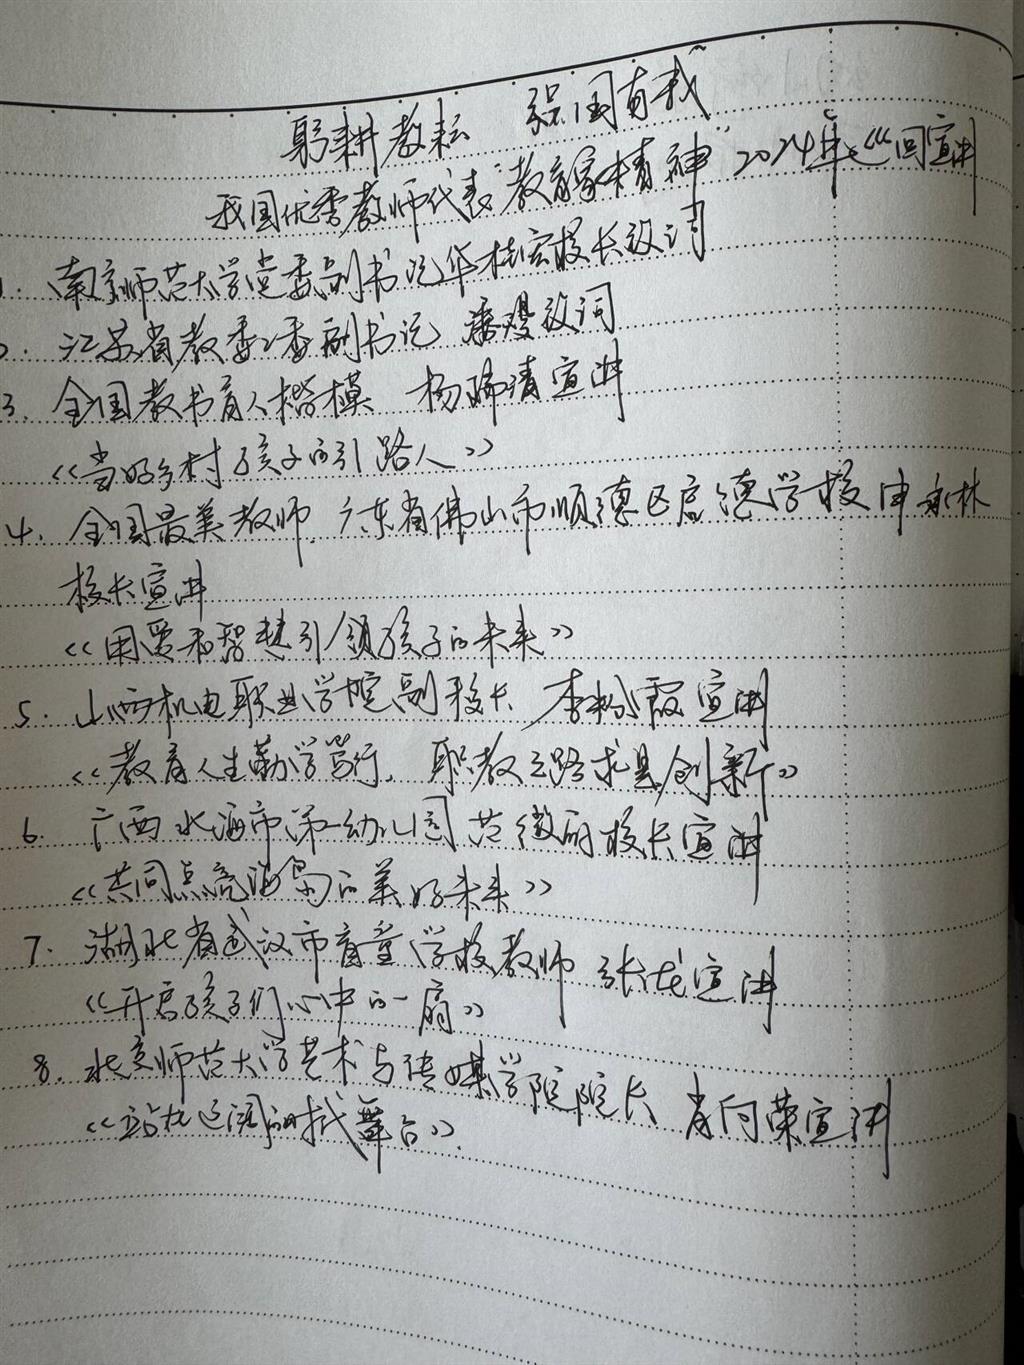 躬耕教坛 强国有我
我国优秀教师代表“教育家精神”2024年巡回宣讲
1. 南京师范大学党委副书记华桂宏校长致词
2. 江苏省教委工委副书记 潘漫致词
3. 全国教书育人楷模 杨瑞清宣讲
《当好乡村孩子的引路人》
4. 全国最美教师. 广东省佛山市顺德区启德学校申承林
校长宣讲
《用爱和智慧引领孩子的未来》
5. 山西机电职业学院副校长 李粉霞宣讲
《教育人生勤学笃行. 职教之路求是创新》
6. 广西北海市第一幼儿园 范徽丽校长宣讲
《共同点亮海岛的美好未来》
7. 湖北省武汉市育童学校教师 张龙宣讲
《开启孩子们心中的一扇》
8. 北京师范大学艺术与传媒学院院长 肖向荣宣讲
《站在辽阔的舞台》.